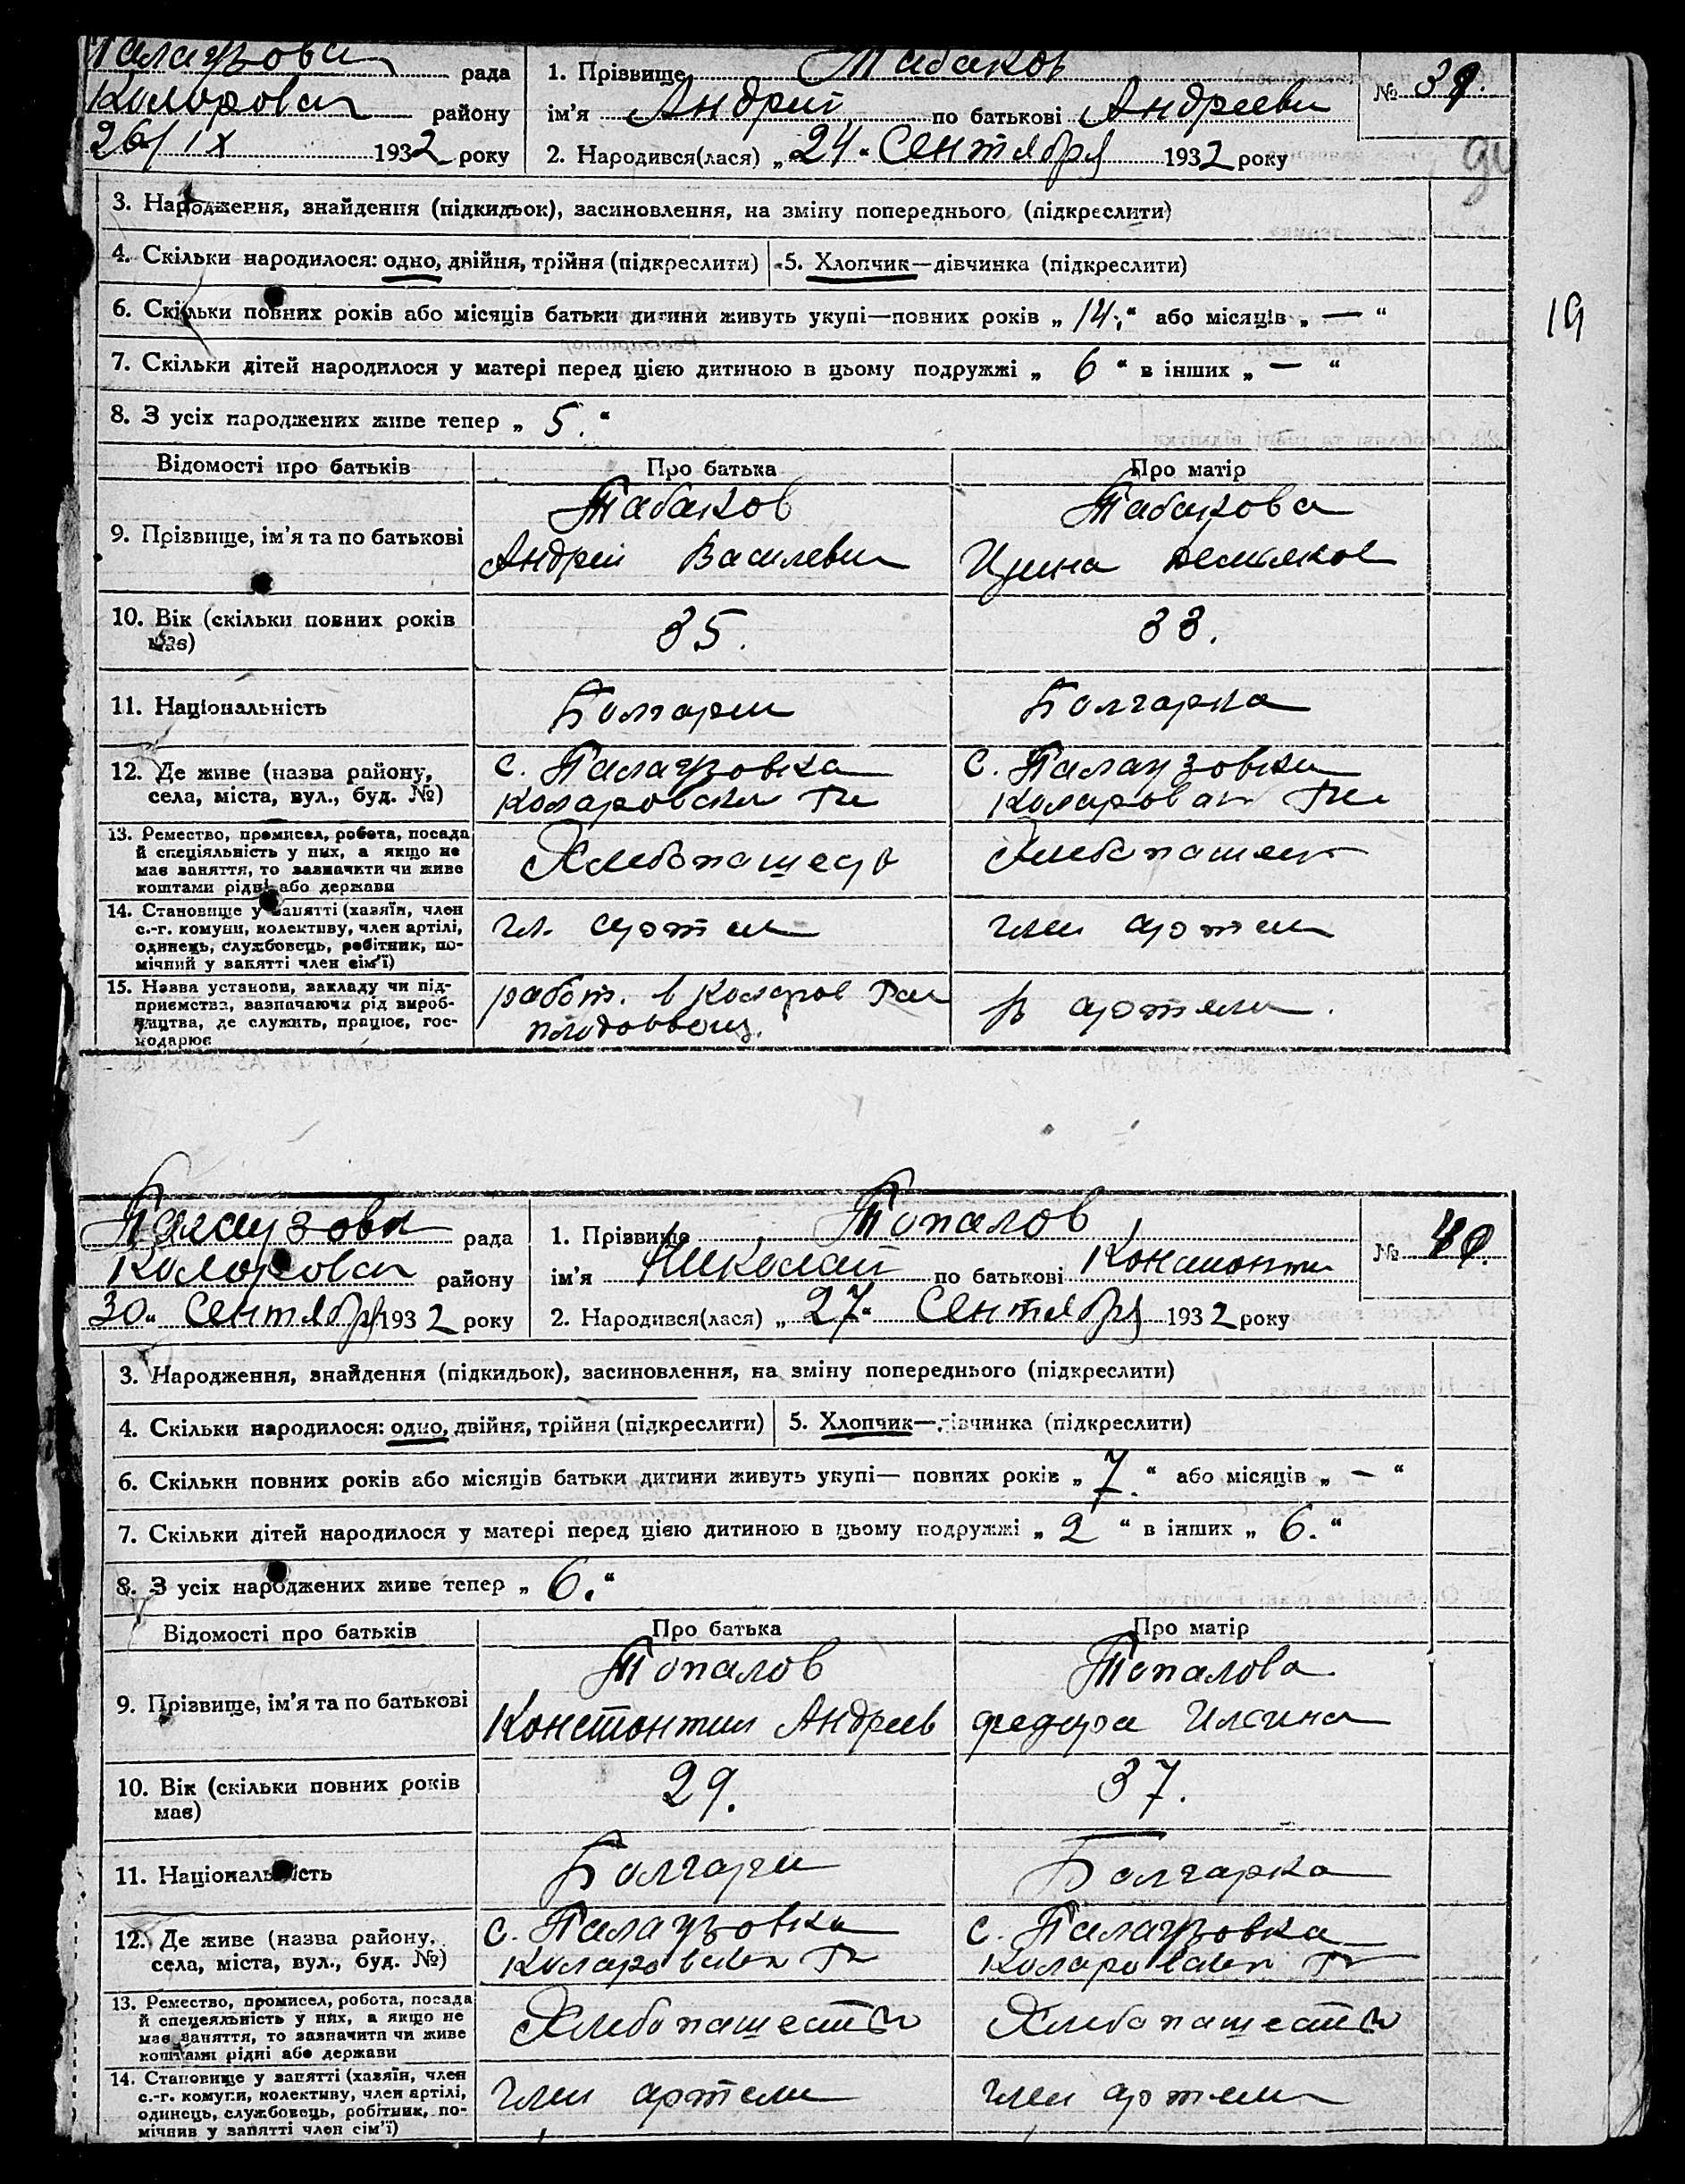 Палаузова рада
Коларовск району
26/IX 1932 року
1. Прізвище Табаков
№ 39.
ім'я Андрей по батькові Андрееви
2. Народився(лася) „24“ Сентября 1932 року
3. Народження, знайдення (підкидьок), засиновлення, на зміну попереднього (підкреслити)
4. Скільки народилося: одно, двійня, трійня (підкреслити)
5. Хлопчик—дівчинка (підкреслити)
6. Скільки повних років або місяців батьки дитини живуть укупі—повних років „14.“ або місяців „—“
19
7. Скільки дітей народилося у матері перед цією дитиною в цьому подружжі „6“ в інших „—“
8. З усіх народжених живе тепер „5.“
Відомості про батьків Про батька Про матір
9. Прізвище, ім'я та по батькові
Табаков
Андрей Василеви
Табакова
10. Вік (скільки повних років має)
35.
33.
11. Національність
Болгарин
Болгарка
12. Де живе (назва району,
села, міста, вул., буд. №)
с. Палаузовка
Коларовски
с. Палаузовка
Коларовск
13. Ремество, промисел, робота, посада
й спеціяльність у них, а якщо не
має заняття, то зазначити чи живе
коштами рідні або держави
Хлебопашест
Хлебопашест
14. Становище у занятті (хазяїн, член
с.-г. комуни, колективу, член артілі,
одинець, службовець, робітник, по-
мічний у занятті член сім'ї)
чл. артели
член артели
15. Назва установи, закладу чи під-
приємства, зазначаючи рід вироб-
ництва, де служить, працює, гос-
подарює
работ. в Коларов
В артели.
Палаузовк рада
Коларовск району
30“ Сентября 1932 року
1. Прізвище Топалов
№ 40.
ім'я Николай по батькові Констонти
2. Народився(лася) „27“ Сентября 1932 року
3. Народження, знайдення (підкидьок), засиновлення, на зміну попереднього (підкреслити)
4. Скільки народилося: одно, двійня, трійня (підкреслити)
5. Хлопчик—дівчинка (підкреслити)
6. Скільки повних років або місяців батьки дитини живуть укупі— повних років „7.“ або місяців „—“
7. Скільки дітей народилося у матері перед цією дитиною в цьому подружжі „2“ в інших „6.“
8. З усіх народжених живе тепер „6.“
Відомості про батьків Про батька Про матір
9. Прізвище, ім'я та по батькові
Топалов
Констонтин Андреев
Топалова
Федора Илсина
10. Вік (скільки повних років
має)
29.
37.
11. Національність
Болгарин
Болгарка
12. Де живе (назва району,
села, міста, вул., буд. №)
с. Палаузовка
Коларовскн
с. Палаузовка
Коларовскн
13. Ремество, промисел, робота, посада
й спецеяльність у них, а якщо не
має заняття, то зазначити чи живе
коштами рідні або держави
Хлебопашество
Хлебопашество
14. Становище у занятті (хазяїн, член
с.-г. комуни, колективу, член артілі,
одинець, службовець, робітник, по-
мічнив у занятті член сім'ї)
член артели
член артели